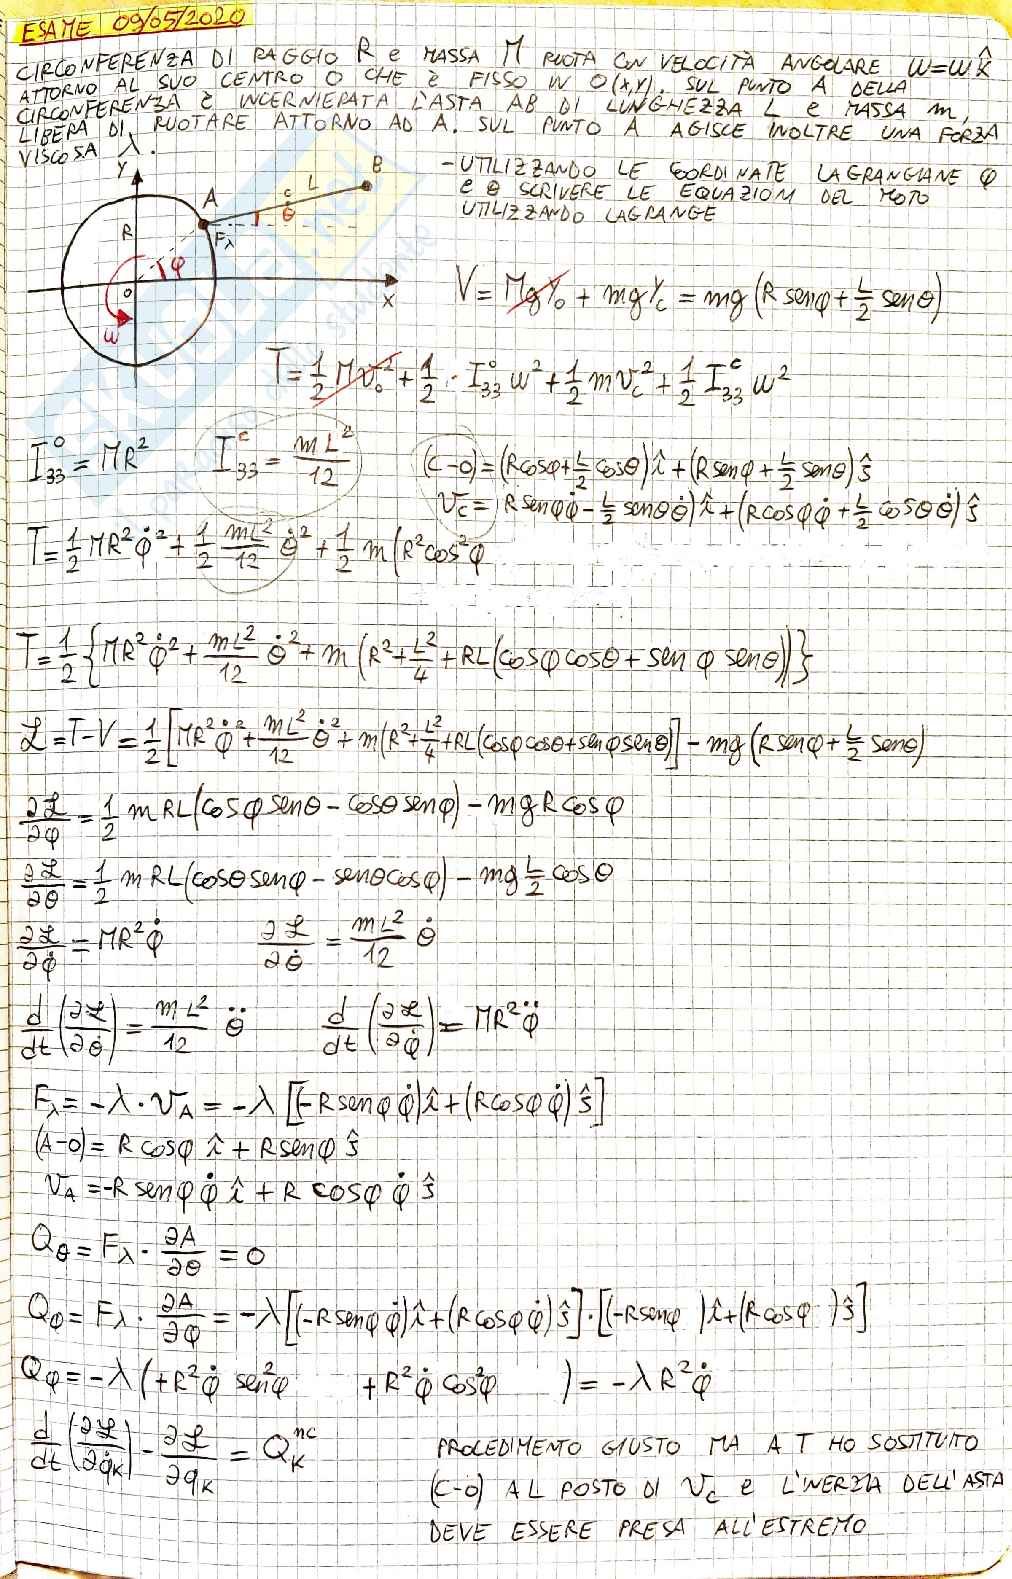 ESAME 09/05/2020
CIRCONFERENZA DI RAGGIO R e MASSA M RUOTA CON VELOCITÀ ANGOLARE ω=ωk̂
ATTORNO AL SUO CENTRO O CHE È FISSO IN O(x,y). SUL PUNTO A DELLA
CIRCONFERENZA È INCERNIERATA L'ASTA AB DI LUNGHEZZA L e MASSA m,
LIBERA DI RUOTARE ATTORNO AD A. SUL PUNTO A AGISCE INOLTRE UNA FORZA
VISCOSA λ.
- UTILIZZANDO LE COORDINATE LAGRANGIANE φ
e θ SCRIVERE LE EQUAZIONI DEL MOTO
UTILIZZANDO LAGRANGE
Y
A
L
c
B
R
θ
Fλ
φ
O
X
ω
V = Mg Y₀ + mg Y_c = mg (R senφ + L/2 senθ)
T = 1/2 M v₀² + 1/2 · I₃₃⁰ ω² + 1/2 m v_c² + 1/2 I₃₃ᶜ ω²
I₃₃⁰ = MR² I₃₃ᶜ = mL²/12 (C-O) = (R cosφ + L/2 cosθ) î + (R senφ + L/2 senθ) ĵ
v_c = R senφ φ̇ - L/2 senθ θ̇) î + (R cosφ φ̇ + L/2 cosθ θ̇) ĵ
T = 1/2 MR² φ̇² + 1/2 mL²/12 θ̇² + 1/2 m (R² cos²φ
T = 1/2 {MR² φ̇² + mL²/12 θ̇² + m (R² + L²/4 + RL (cosφ cosθ + sen φ senθ))}
ℒ = T-V = 1/2 [MR² φ̇² + mL²/12 θ̇² + m(R² + L²/4 + RL(cosφ cosθ + senφ senθ)] - mg (R senφ + L/2 senθ)
∂ℒ/∂φ = 1/2 m RL (cosφ senθ - cosθ senφ) - mg R cosφ
∂ℒ/∂θ = 1/2 m RL (cosθ senφ - senθ cosφ) - mg L/2 cosθ
∂ℒ/∂φ̇ = MR² φ̇ ∂ℒ/∂θ̇ = mL²/12 θ̇
d/dt (∂ℒ/∂θ̇) = mL²/12 θ̈ d/dt (∂ℒ/∂φ̇) = MR² φ̈
Fλ = -λ · v_A = -λ [(-R senφ φ̇) î + (R cosφ φ̇) ĵ]
(A-O) = R cosφ î + R senφ ĵ
v_A = -R senφ φ̇ î + R cosφ φ̇ ĵ
Q_θ = Fλ · ∂A/∂θ = 0
Q_φ = Fλ · ∂A/∂φ = -λ [(-R senφ φ̇) î + (R cosφ φ̇) ĵ] · [(-R senφ ) î + (R cosφ ) ĵ]
Q_φ = -λ (+R² φ̇ sen²φ + R² φ̇ cos²φ ) = -λ R² φ̇
d/dt (∂ℒ/∂q̇_K) - ∂ℒ/∂q_K = Q_K^nc
PROCEDIMENTO GIUSTO MA A T HO SOSTITUITO
(C-O) AL POSTO DI v_c e L'INERZIA DELL'ASTA
DEVE ESSERE PRESA ALL'ESTREMO